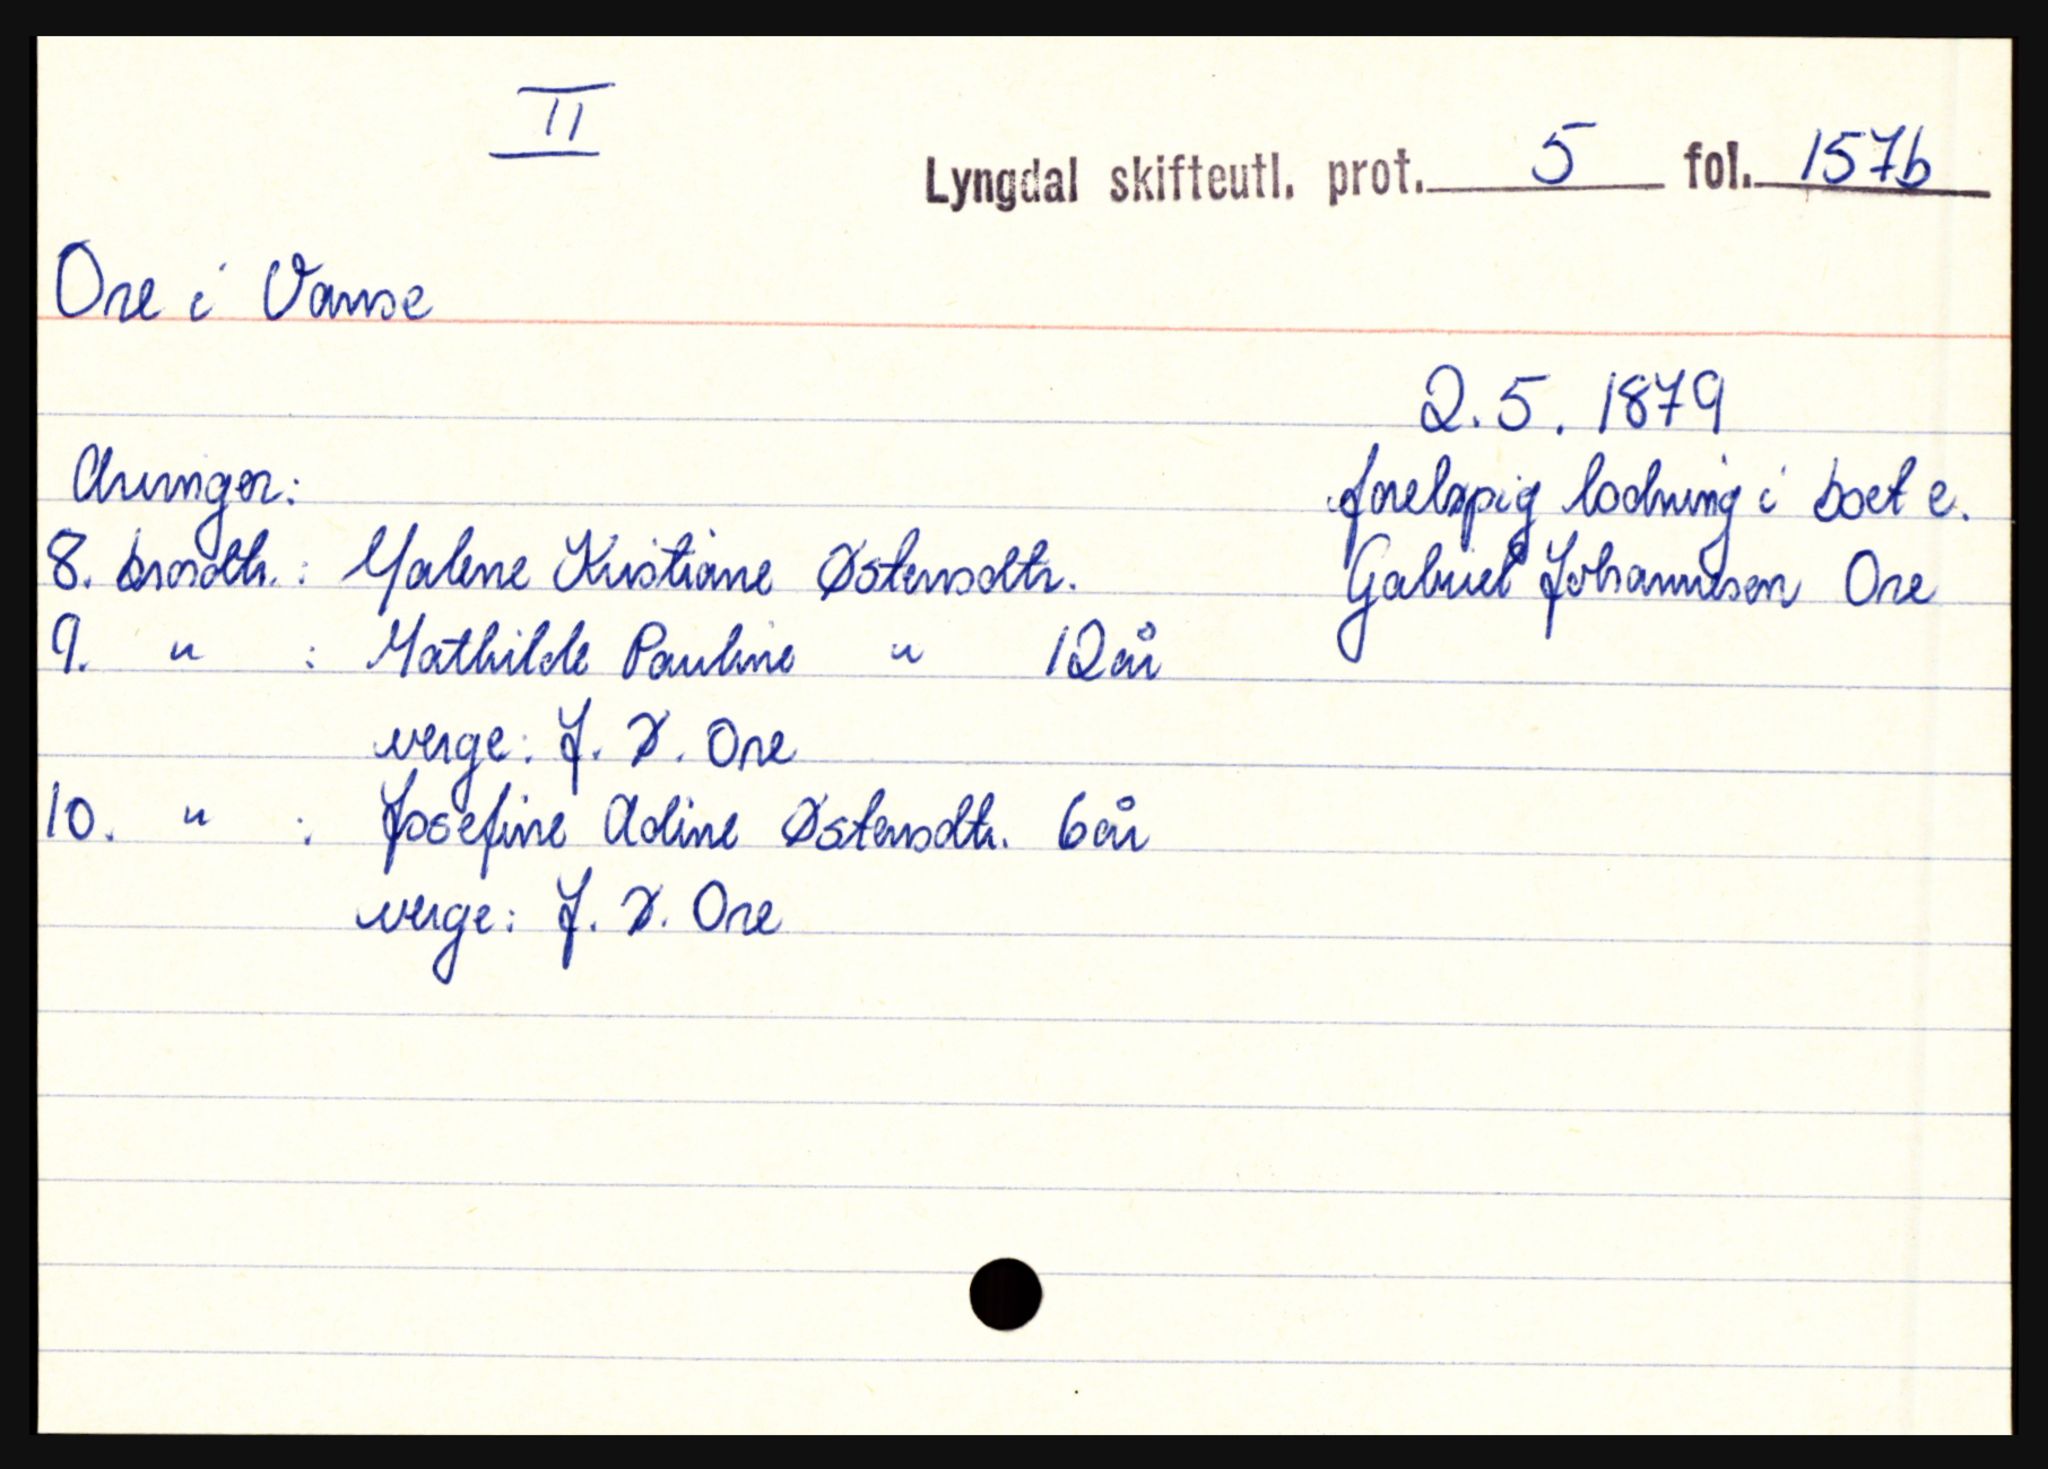 II
Lyngdal skifteutl. prot. 5 fol. 157b
Ore i Vanse
2.5.1879
Arvinger: foreløpig lodning i boet e.
8. brosdtr.: Malene Kristiane Østensdtr. Gabriel Johannesen Ore
9. " : Mathilde Pauline " 12 år
verge: J. Ø. Ore
10. " : Josefine Adine Østensdtr. 6 år
verge: J. Ø. Ore